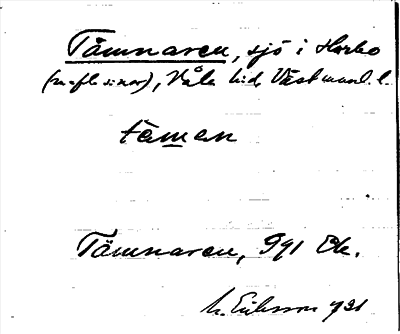 Tämnaren, sjö i Harbo
(m fl. s:nar), Våla hd, Västmanl. l.
tämen
Tämnaren, 991 Ek.
M. Eriksson 1931